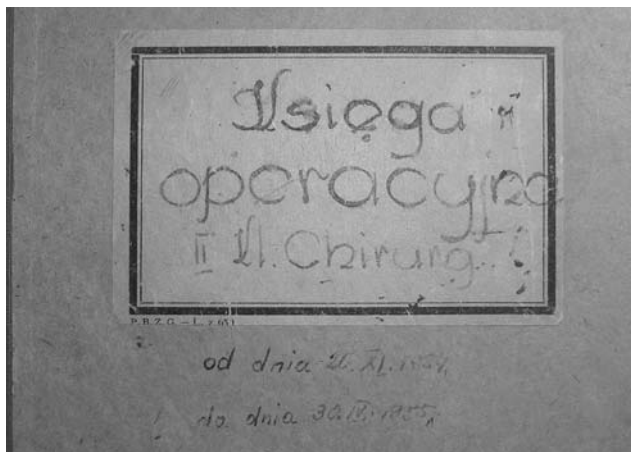 Księga
operacyjna
II Kl. Chirurg.
P.B.Z.G. – L. z 651
od dnia XI.
do dnia 30.IV.1955